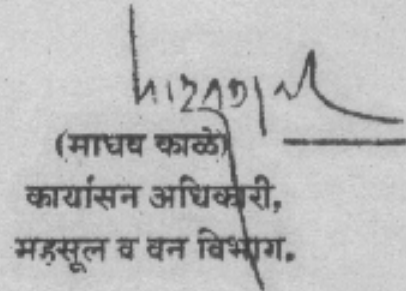 (माधव काळे)
कार्यासन अधिकारी,
महसूल व वन विभाग.